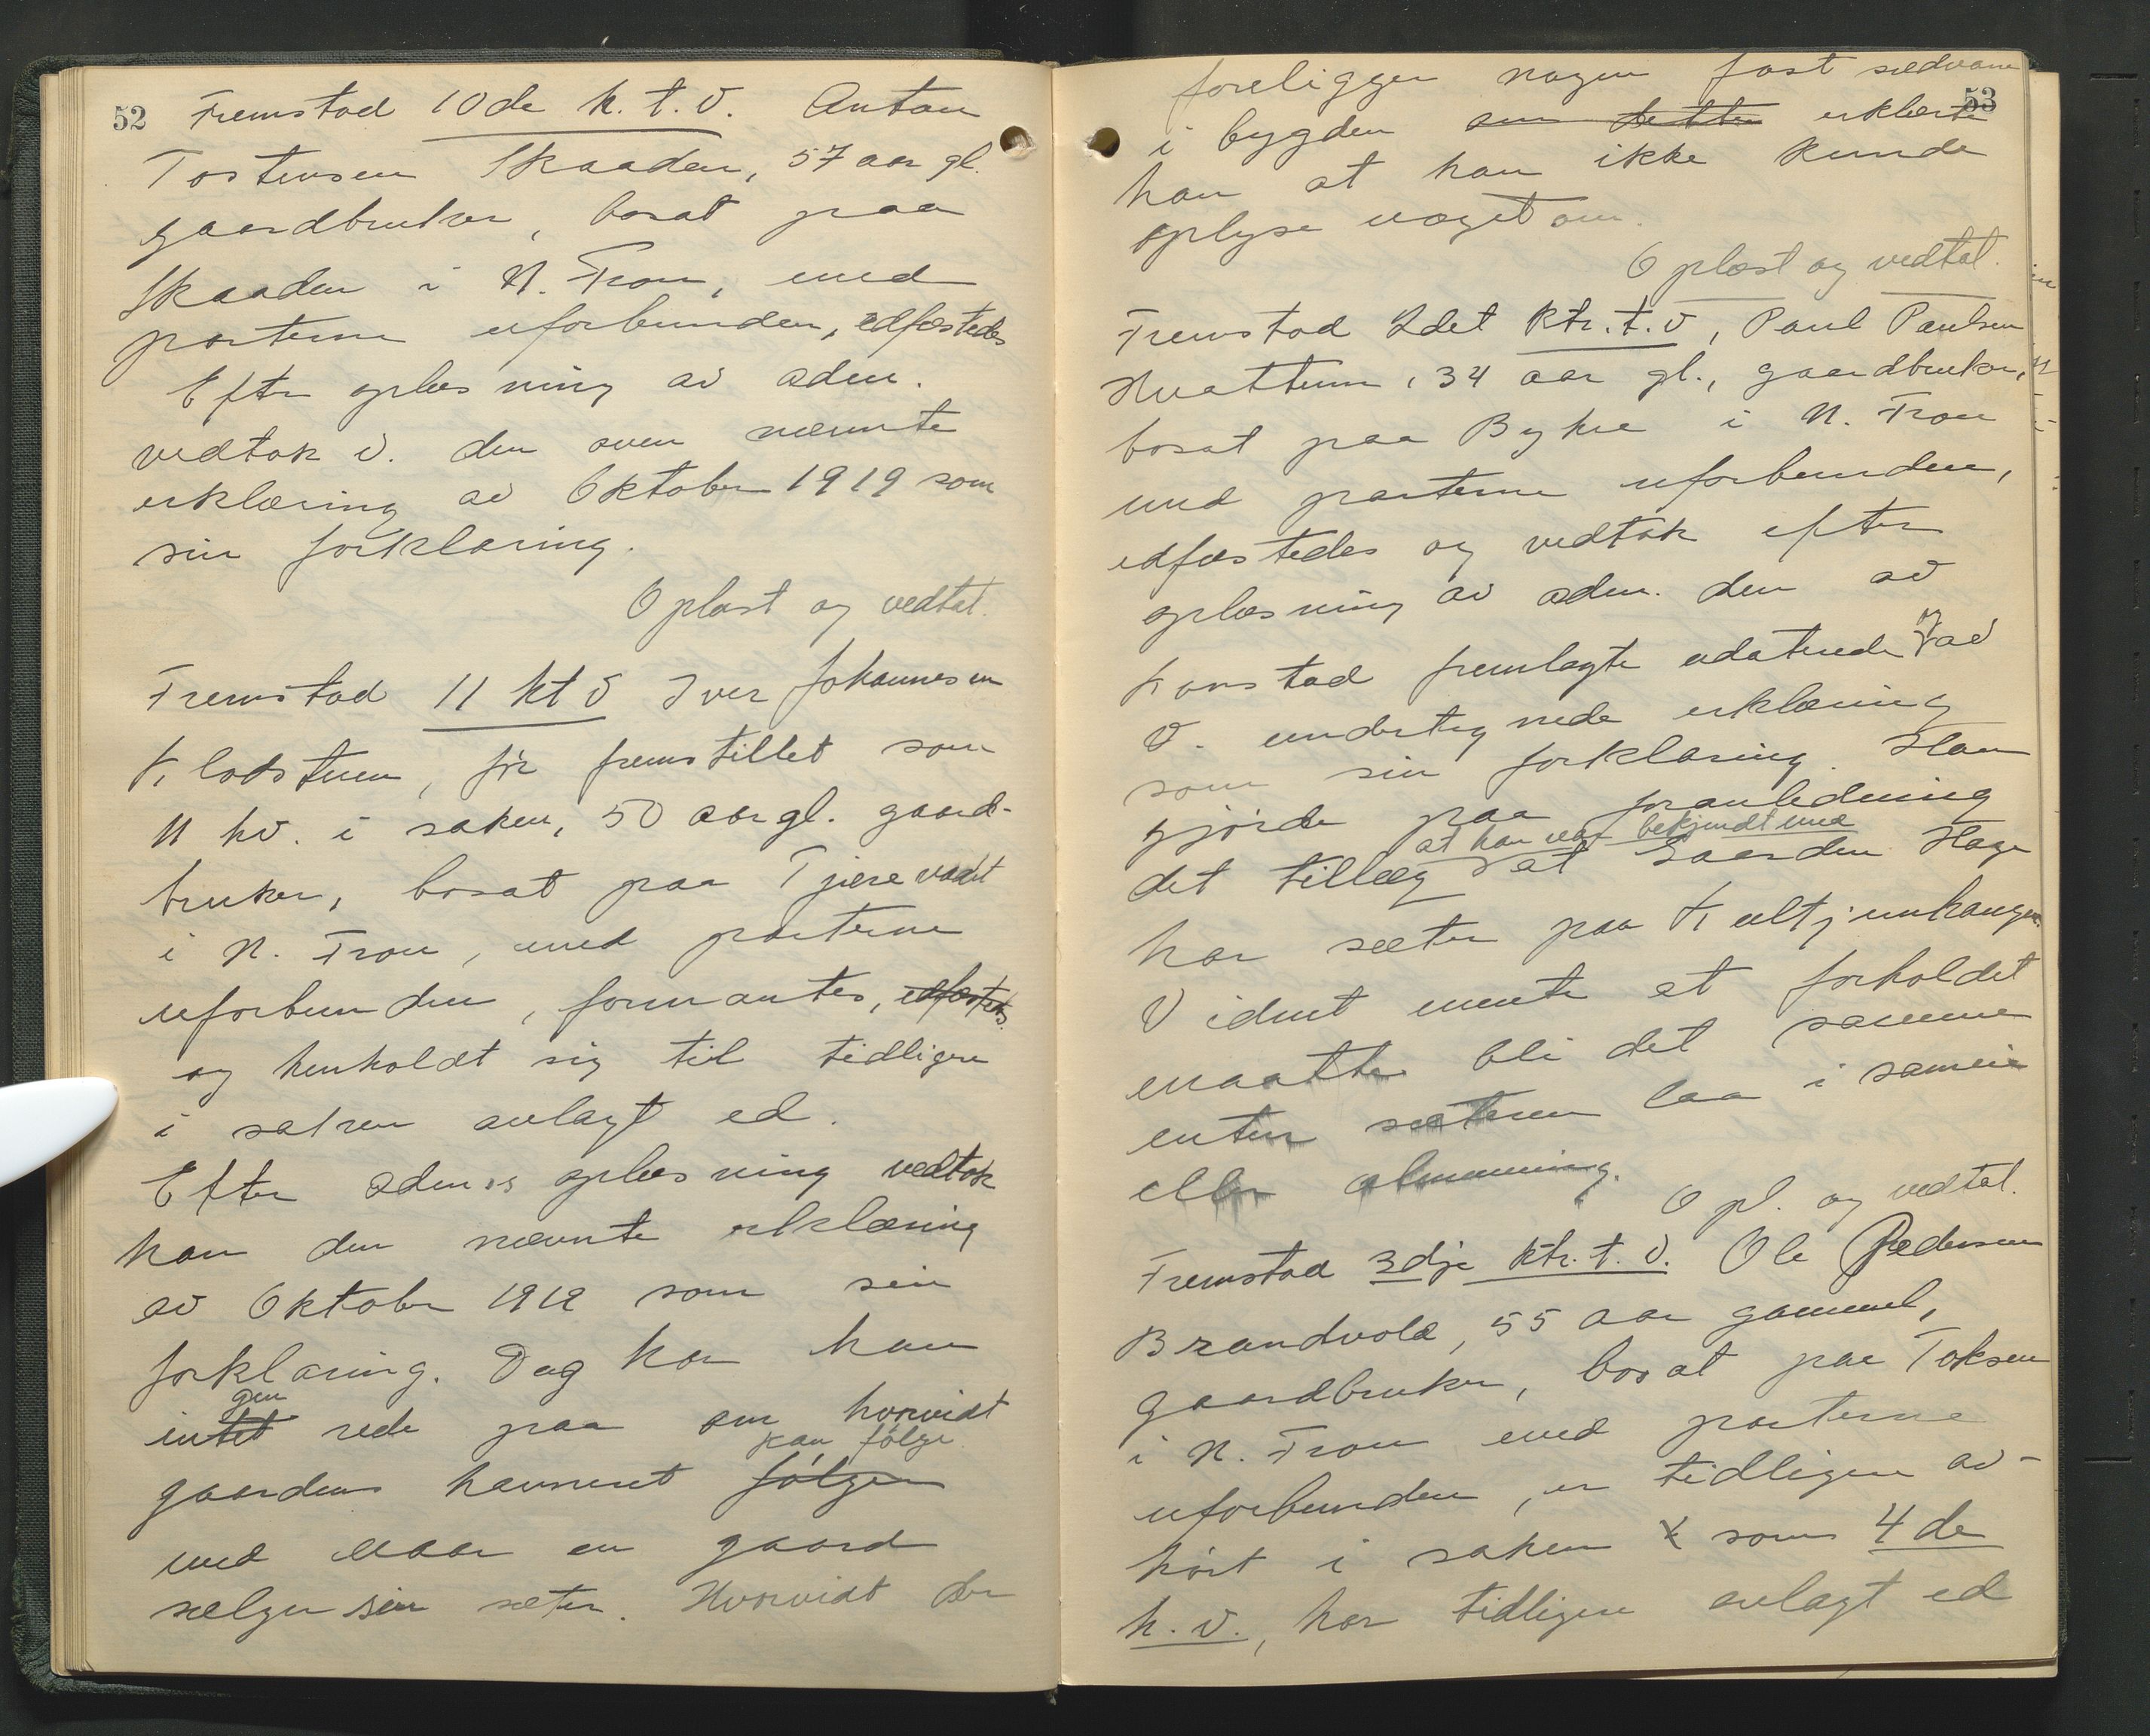 52
Fremstod 10de k. t. V. Anton
Tostensen Skaaden, 57 aar gl.
gaardbruker, bosat paa
Skaaden i N. Fron, med
parterne uforbunden, edfæstedes
Efter oplæsning av aden.
vedtok V. den oven nævnte
erklæring av Oktober 1919 som
sin forklaring.
Oplæst og vedtat.
Fremstod 11 kt V Iver Johannesen
Klodstuen, før fremstillet som
11 hv. i saken, 50 aar gl. gaard-
bruker, bosat paa Tjæreva
i N. Fron, med parterne
uforbunden, formantes, edfæstedes
og henholdt sig til tidligere
i saken avlagt ed.
Efter adens oplæsning vedtok
han den nævnte erklæring
av Oktober 1919 som sin
forklaring. Dog har han
gen
intet rede paa om hvorvidt
kan følge
gaardens havneret følger
med naar en gaard
sælger sin sæter. Hvorvidt der
53
foreligger nogen fast sædvane
i bygden om dette erklærte
han at han ikke kunde
oplyse noget om.
Oplæst og vedtat.
Fremstod 2det ktr. t. V, Paul Paulsen
Hvattum, 34 aar gl., gaardbruker,
bosat paa Bykre i N. Fron
med parterne uforbunden,
edfæstedes og vedtok efter
oplæsning av aden. den av
og
Konstad fremlagte udaterede av
V. undertegnede erklæring
som sin forklaring. Han
gjorde paa foranledning
at han var bekjendt med
det tillæg at Gaarden Hage
har sæter paa Kultjernhaugen.
Vidnet mente at forholdet
maatte bli det samme
enten sæteren laa i sameie
eller almenning.
Opl. og vedtat.
Fremstod 3dje ktr. t. V. Ole Pedersen
Brandvold, 55 aar gammel,
gaardbruker, bosat paa Toksen
i N. Fron med parterne
uforbunden, er tidligere av-
hørt i saken som 4de
h. v., har tidligere avlagt ed